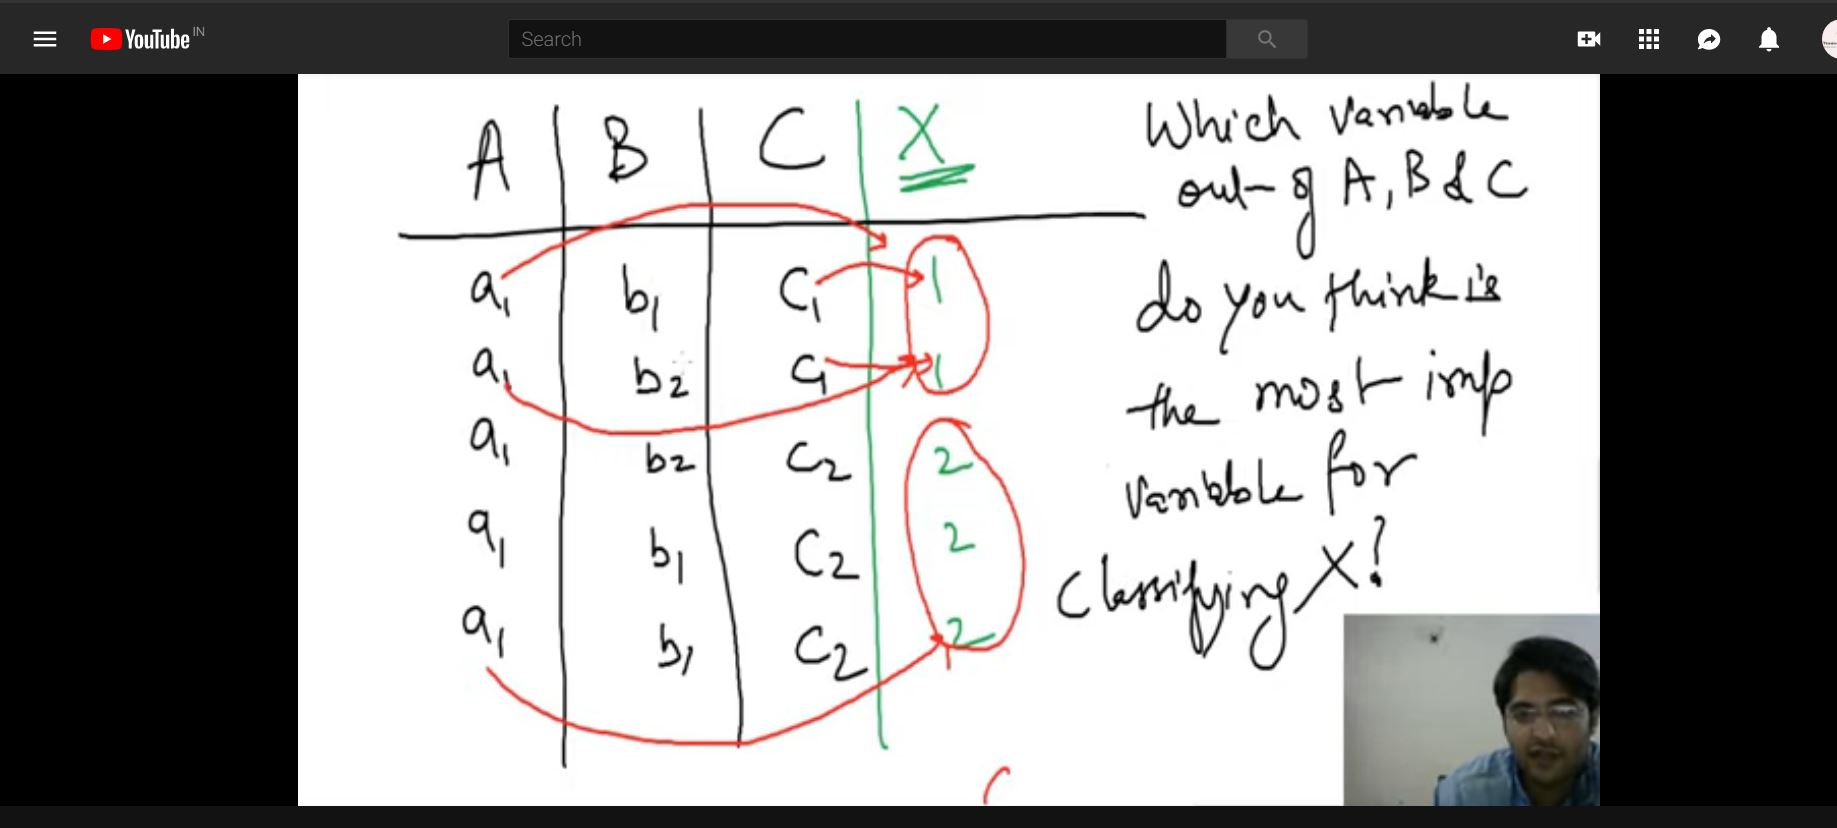 YouTube IN
Search
A B C X
a1 b1 C1 1
a1 b2 C1 1
a1 b2 C2 2
a1 b1 C2 2
a1 b1 C2 2
Which variable
out of A, B & C
do you think is
the most imp
variable for
Classifying X?